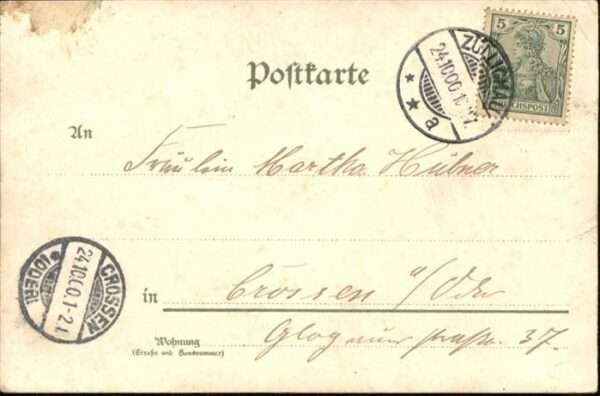 5 5
REICHSPOST
ZÜLLICHAU
24.10.00.
* * a
Postkarte
An
Fräulein Martha Hübner
CROSSEN
24.10.00.1-2N.
* (ODER)
in Crossen a/Oder
Wohnung
(Straße und Hausnummer)
Glogauerstraße. 37.